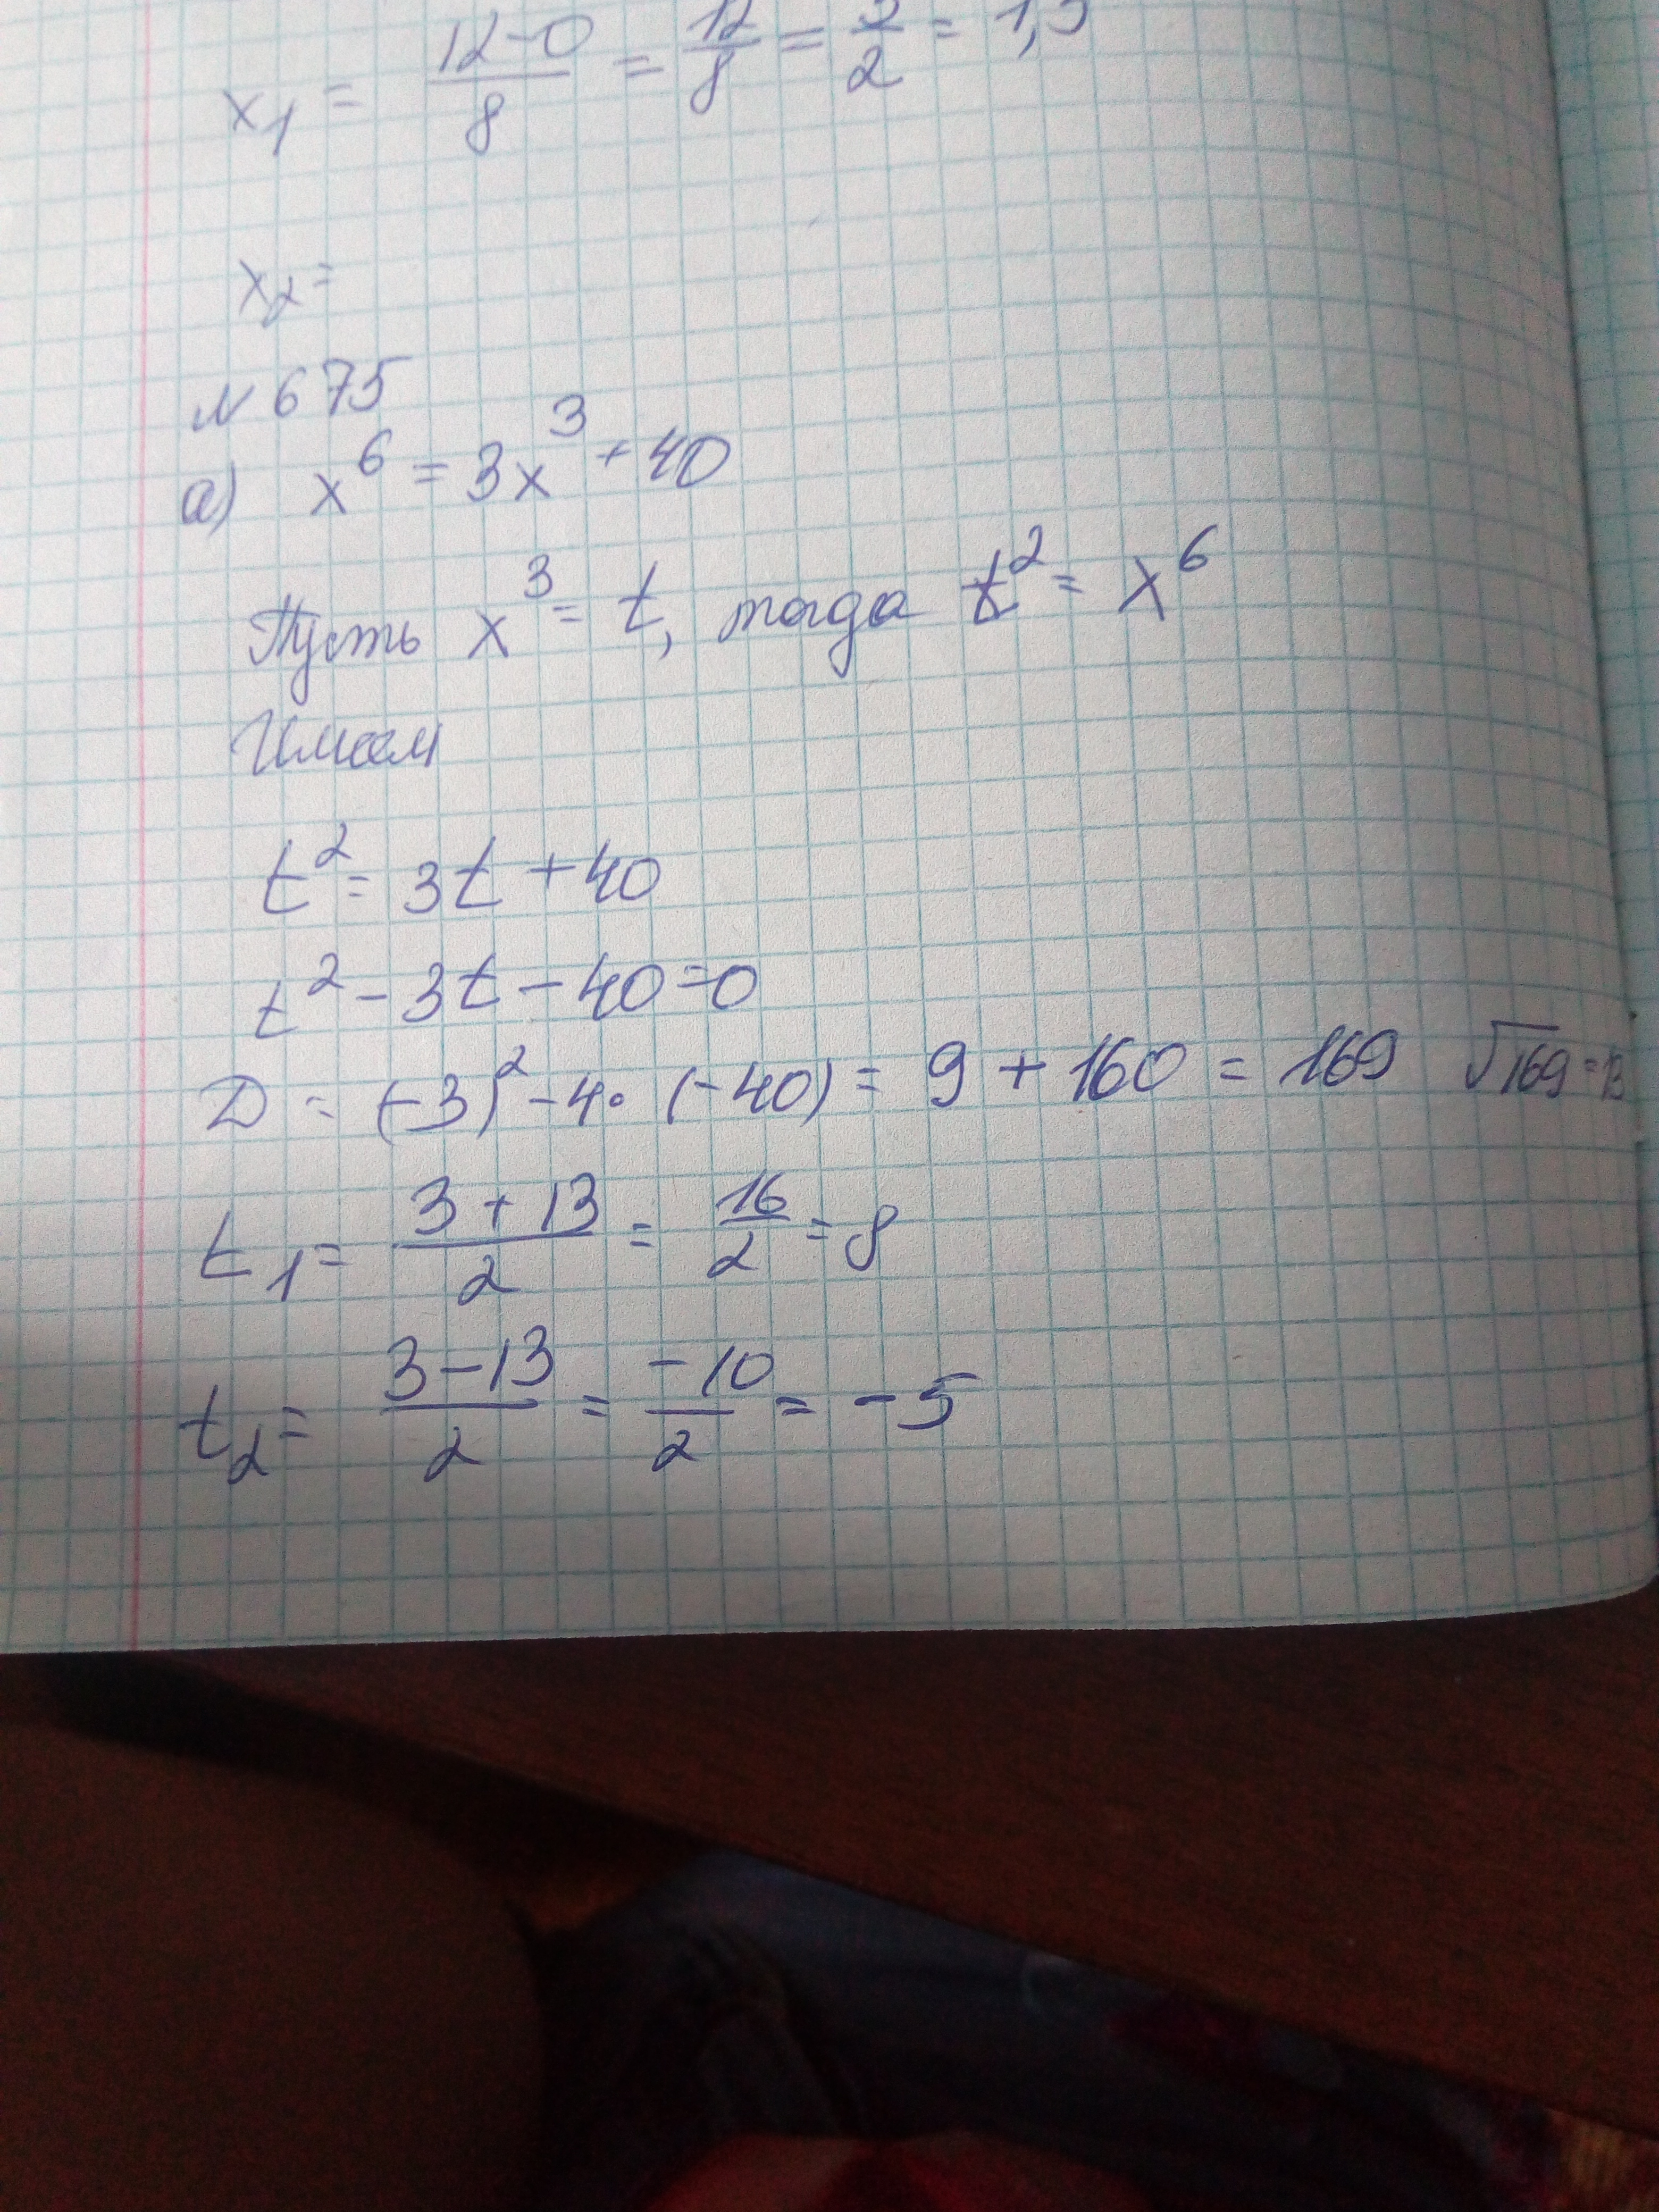 x₁ = (12-0)/8 = 12/8 = 3/2 = 1,5
x₂ =
N 675
a) x⁶ = 3x³ + 40
Пусть x³ = t, тогда t² = x⁶
Имеем
t² = 3t + 40
t² - 3t - 40 = 0
D = (-3)² - 4 · (-40) = 9 + 160 = 169 √169 = 13
t₁ = (3 + 13)/2 = 16/2 = 8
t₂ = (3 - 13)/2 = -10/2 = -5